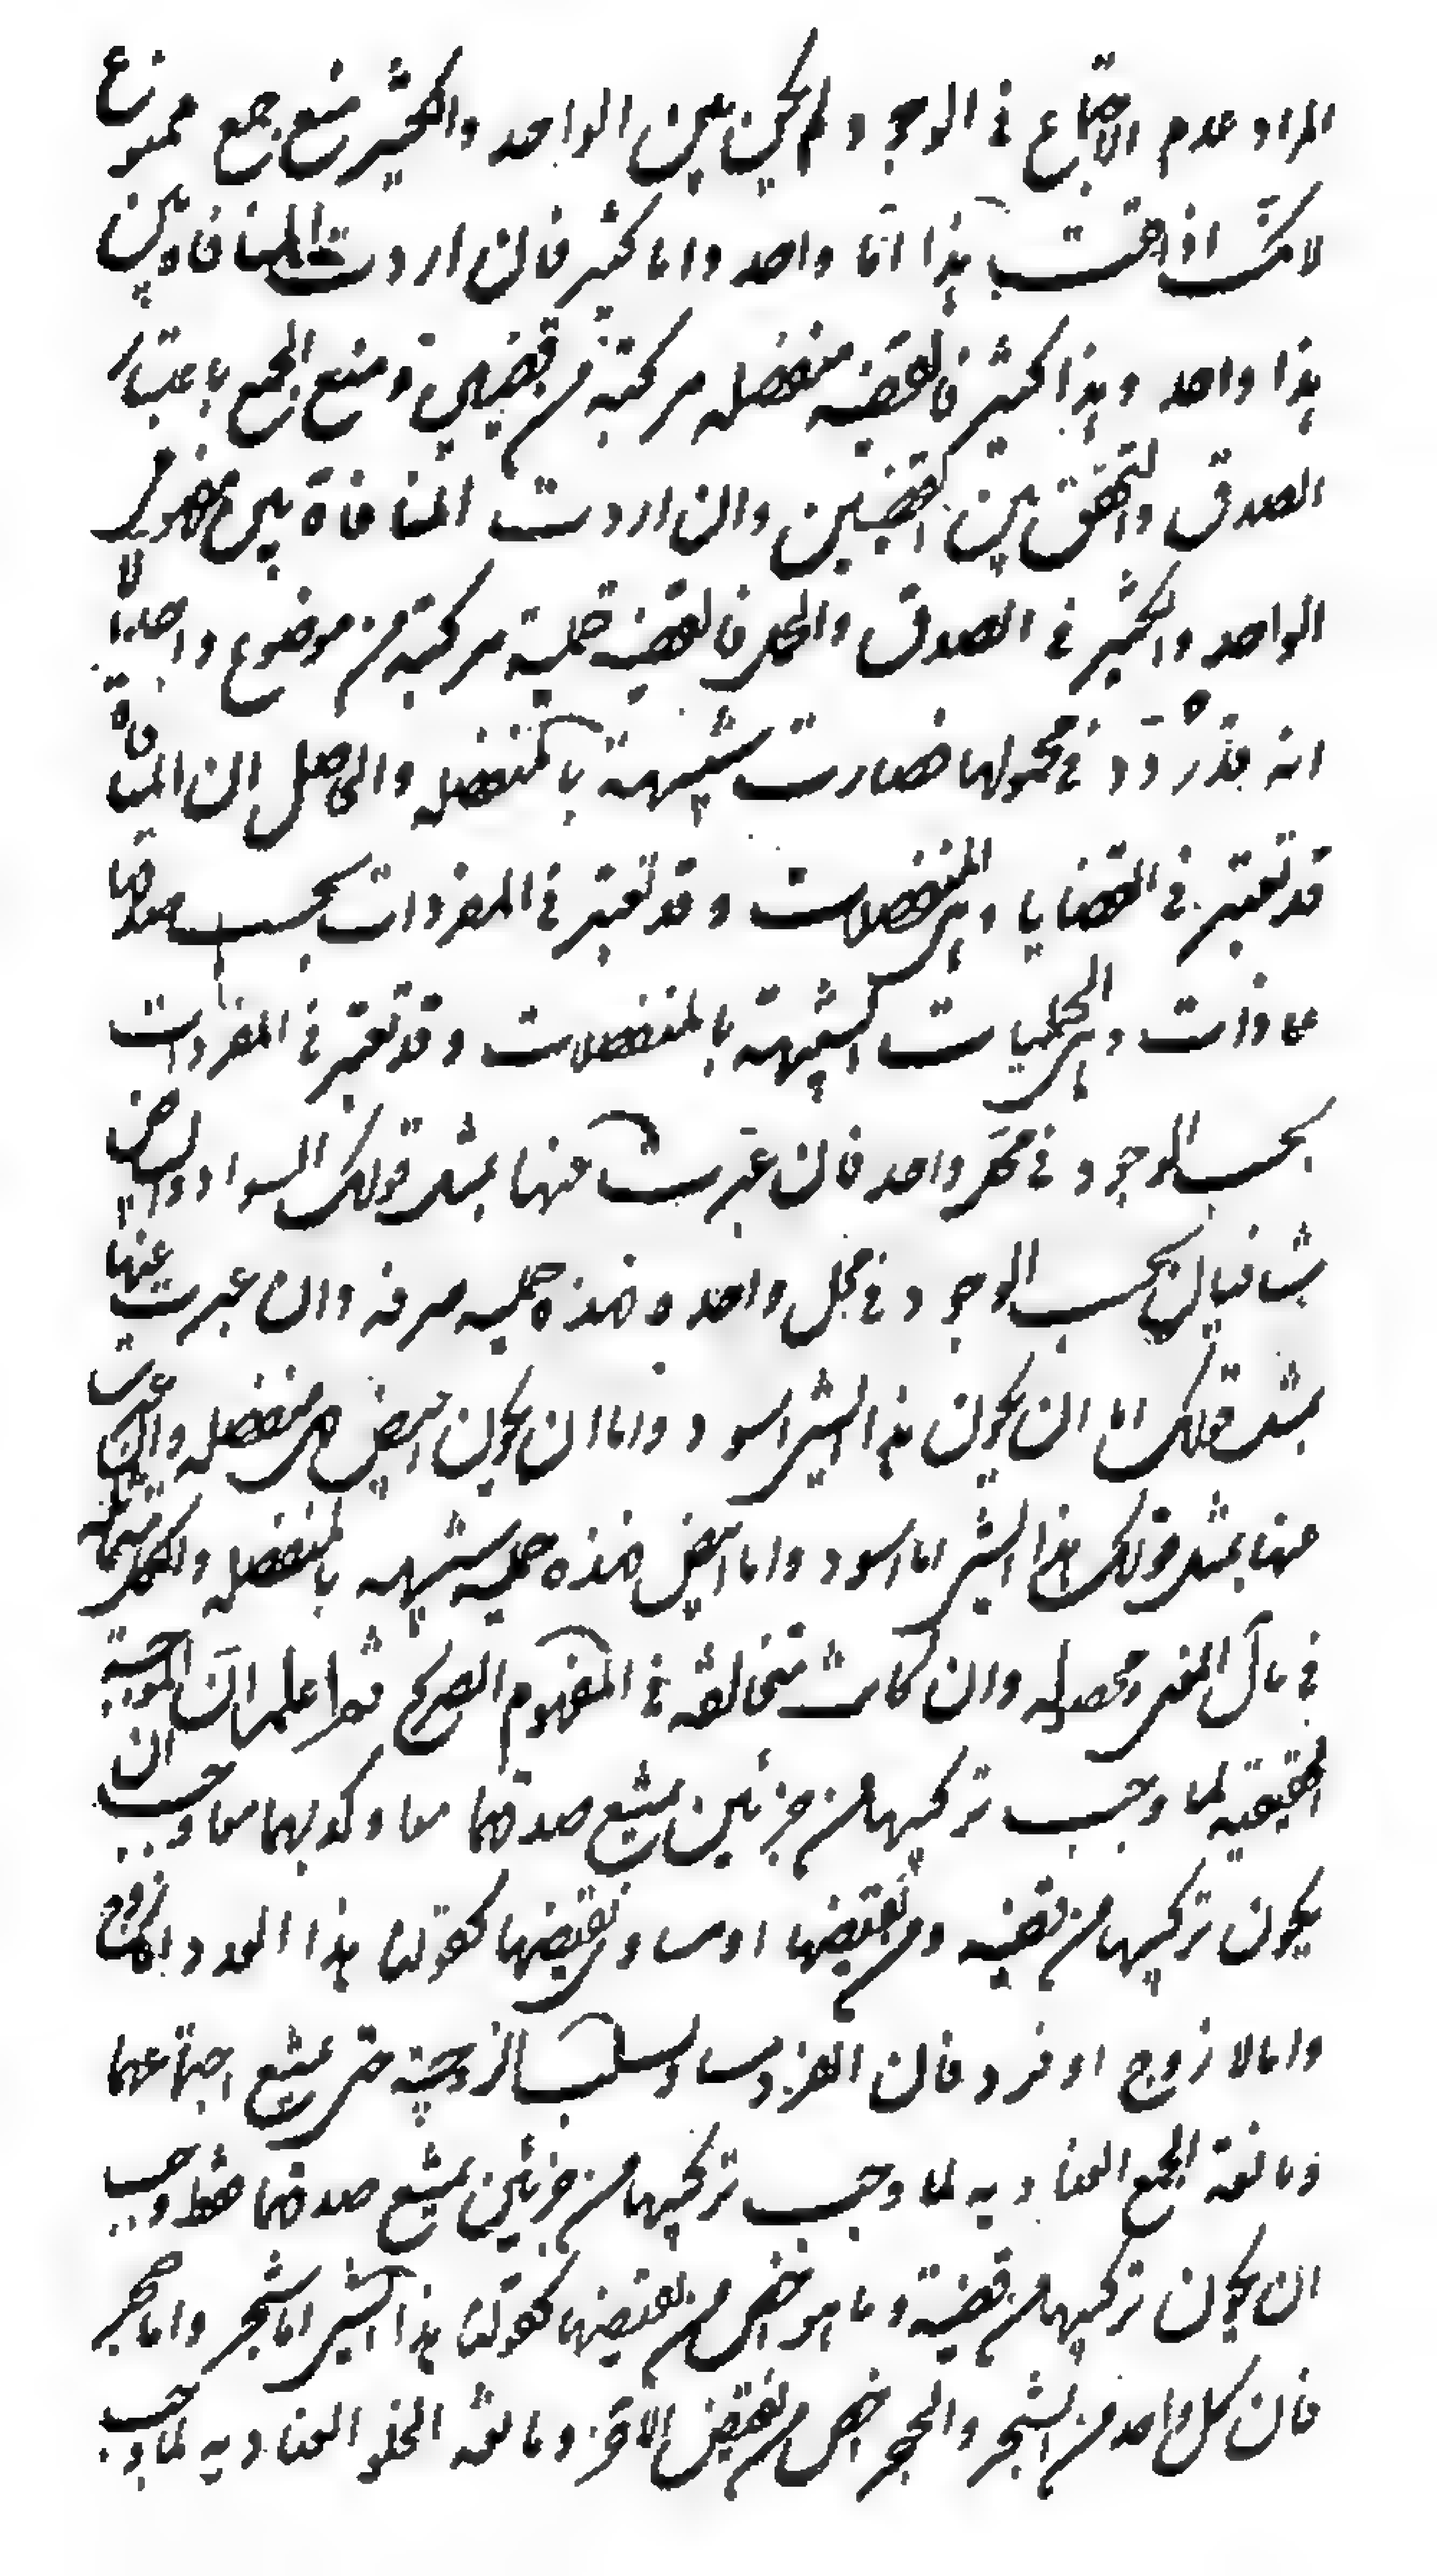 المراد عدم الاجتماع في الوجود لم يكن بين الواحد والكثير منع جمع ممنوع
لانك اذا قلت هذا اما واحد واما كثير فان اردت المنافاة بين
هذا واحد وهذا كثير فالقضية منفصله مركبة من قضيتين ومنع الجمع باعتبار
الصدق والتحقق بين القضيتين وان اردت المنافاة بين مفهومى
الواحد والكثير في الصدق والحمل فالقضية حملية مركبة من موضوع واحد الا
انه قد ردد في محمولها فصارت شبيهة بالمنفصله والحاصل ان المنافاة
قد تعتبر في القضايا وهى المنفصلات وقد تعتبر في المفردات بحسب صدقها
على ذات وهى الحمليات الشبيهة بالمنفصلات وقد تعتبر في المفردات
بحسب الوجود في محل واحد فان عبرت عنها بمثل قولك السواد والبياض
متنافيان بحسب الوجود في محل واحد فهذه حمليه صرفه وان عبرت عنها
بمثل قولك اما ان يكون هذا الشى اسود واما ان يكون ابيض فهى منفصله وان عبرت
عنها بمثل قولك هذا الشى اما اسود واما ابيض فهذه حمليه شبيهه بالمنفصله والكل
في مآل المعنى ومحصله وان كانت متخالفه في المفهوم الصريح ثم اعلم ان الموجبة
الحقيقيه لما وجب تركيبها من جزئين يمتنع صدقهما معا وكذبهما معا وجب ان
يكون تركيبها من قضيه ومن نقيضها او مساوى نقيضها كقولنا هذا العدد اما زوج
واما لا زوج او فرد فان الفرد مساو لسلب الزوجية حتى يمتنع اجتماعهما
ومانعة الجمع العناديه لما وجب تركيبها من جزئين يمتنع صدقهما فقط وجب
ان يكون تركيبها من قضية وما هو اخص من نقيضها كقولنا هذا الشى اما شجر واما حجر
فان كل واحد من الشجر والحجر اخص من نقيض الاخر ومانعه الخلو العناديه لما وجب